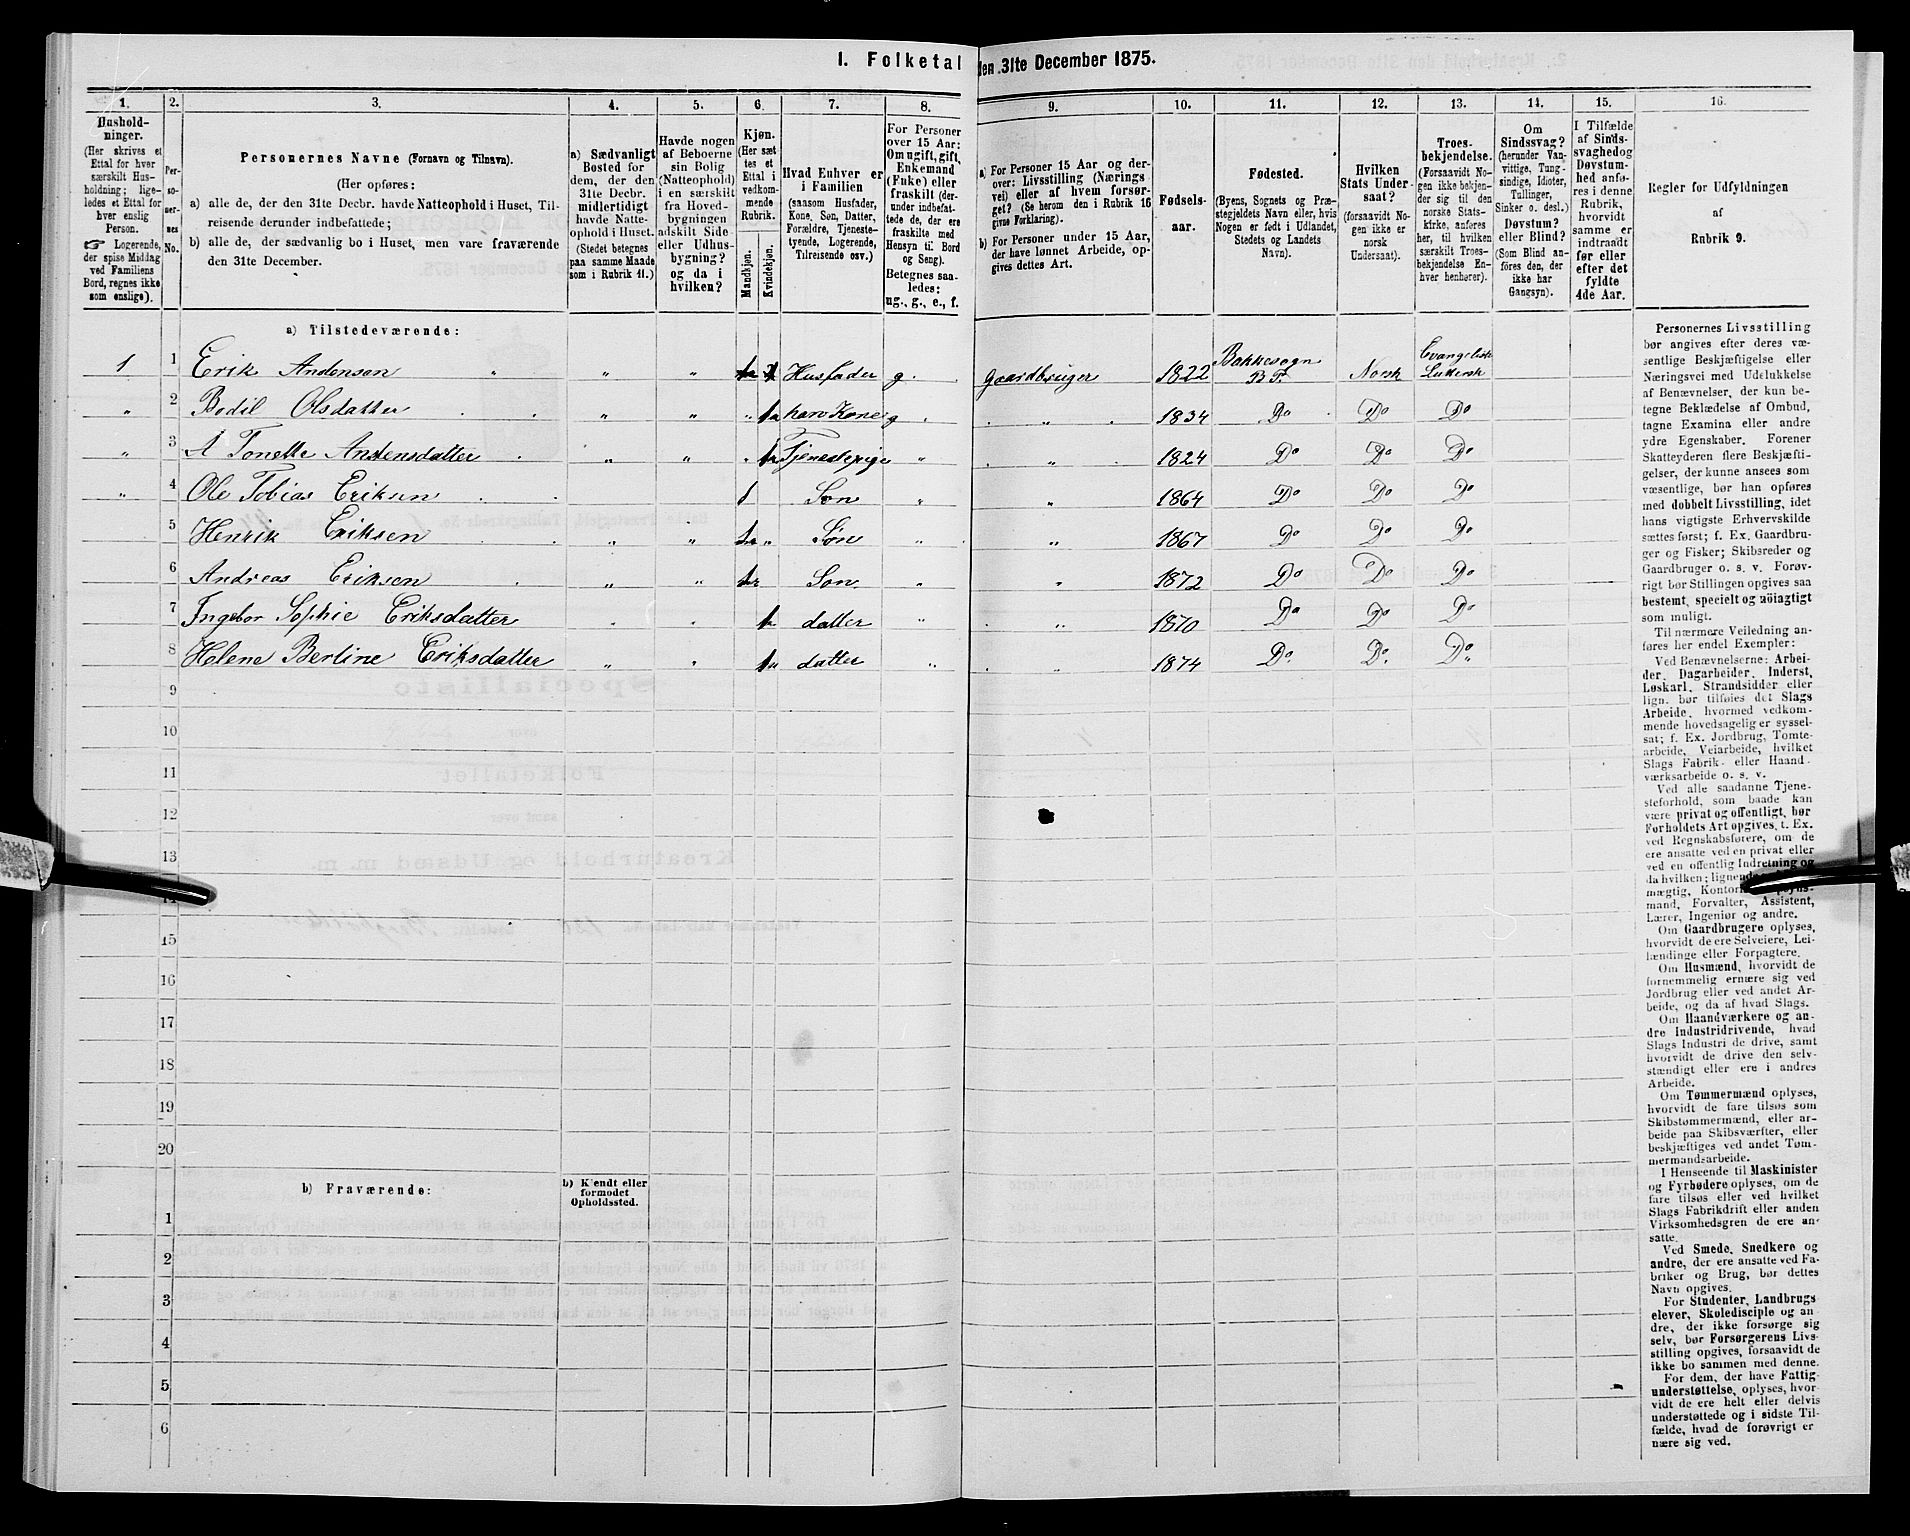 1. Folketal den 31te December 1875.
1. 2. 3. 4. 5. 6. 7. 8. 9. 10. 11. 12. 13. 14. 15. 16.
Husholdninger.
(Her skrives et
Ettal for hver
særskilt Husholdning; ligeledes
et Ettal for
hver enslig
Person.
☞ Logerende,
der spise Middag
ved Familiens
Bord, regnes ikke
som enslige).
Personernes
No.
Personernes Navne (Fornavn og Tilnavn).
(Her opføres:
a) alle de, der den 31te Decbr. havde Natteophold i Huset, Tilreisende
derunder indbefattede;
b) alle de, der sædvanlig bo i Huset, men vare fraværende
den 31te December.
a) Sædvanligt
Bosted for
dem, der den
31te Decbr.
midlertidigt
havde Natteophold
i Huset.
(Stedet betegnes
paa samme Maade
som i Rubrik 11.)
Havde nogen
af Beboerne
sin Bolig
(Natteophold)
i en særskilt
fra Hovedbygningen
adskilt Side
eller Udhusbygning?
og da i
hvilken?
Kjøn.
(Her sættes
et
Ettal i
vedkommende
Rubrik.
Mandkjøn.
Kvindekjøn.
Hvad Enhver er
i Familien
(saasom Husfader,
Kone, Søn, Datter,
Forældre, Tjenestetyende,
Logerende,
Tilreisende osv.)
For Personer
over 15 Aar:
Om ugift, gift,
Enkemand
(Enke) eller
fraskilt (derunder
indbefattede
de, der ere
fraskilte med
Hensyn til Bord
og Seng).
Betegnes saaledes:
ug., g., e., f.
a) For Personer 15 Aar og derover:
Livsstilling (Næringsvei)
eller af hvem forsørget?
(Se herom den i Rubrik 16
givne Forklaring).
b) For Personer under 15 Aar,
der have lønnet Arbeide, opgives
dettes Art.
Fødselsaar.
Fødested.
(Byens, Sognets og Præstegjeldets
Navn eller, hvis
Nogen er født i Udlandet,
Stedets og Landets
Navn).
Hvilken
Stats Undersaat?
(forsaavidt Nogen
ikke er
norsk
Undersaat).
Troesbekjendelse.
(Forsaavidt Nogen
ikke bekjender
sig til den
norske Statskirke,
anføres
her, til hvilken
særskilt Troesbekjendelse
Enhver
henhører).
Om
Sindssvag?
(herunder Vanvittige,
Tungsindige,
Idioter,
Tullinger,
Sinker o. desl.)
Døvstum?
eller Blind?
(Som Blind anføres
den, der
ikke har
Gangsyn).
I Tilfælde
af Sindssvaghed
og
Døvstumhed
anføres
i denne
Rubrik,
hvorvidt
samme er
indtraadt
før eller
efter det
fyldte
4de Aar.
Regler for Udfyldningen
af
Rubrik 9.
a) Tilstedeværende:
1 1 Erik Andersen " " " 1 Husfader g. Gaardbruger 1822 Bakkesogn B P. Norsk Evangelisk Luthersk
" 2 Bodil Olsdatter " " " 1 hans Kone g " 1834 Do Do Do
" 3 A Tonette Andersdatter " " " 1 Tjenestepige " " 1824 Do Do Do
" 4 Ole Tobias Eriksen 1 Søn " " 1864 Do Do Do
5 Henrik Eriksen " " 1 " Søn " " 1867 Do Do Do
6 Andreas Eriksen " " 1 Søn " " 1872 Do Do Do
7 Ingebor Sophie Eriksdatter " " 1 datter " " 1870 Do Do Do
8 Helene Berline Eriksdatter " " 1 datter " " 1874 Do Do Do
9
10
11
12
13
14
15
16
17
18
19
20
b) Fraværende:
b) Kjendt eller
formodet
Opholdssted.
1
2
3
4
5
6
Personernes Livsstilling
bør angives efter deres væsentlige
Beskjæftigelse eller
Næringsvei med Udelukkelse
af Benævnelser, der kun betegne
Beklædelse af Ombud,
tagne Examina eller andre
ydre Egenskaber. Forener
Skatteyderen flere Beskjæftigelser,
der kunne ansees som
væsentlige, bør han opføres
med dobbelt Livsstilling, idet
hans vigtigste Erhvervskilde
sættes først; f. Ex. Gaardbruger
og Fisker; Skibsreder og
Gaardbruger o. s. v. Forøvrigt
bør Stillingen opgives saa
bestemt, specielt og nöiagtigt
som muligt.
Til nærmere Veiledning anføres
her endel Exempler:
Ved Benævnelserne: Arbeider,
Dagarbeider, Inderst,
Løskarl, Strandsidder eller
lign. bør tilføies det Slags
Arbeide, hvormed vedkommende
hovedsagelig er sysselsat;
f. Ex. Jordbrug, Tomtearbeide,
Veiarbeide, hvilket
Slags Fabrik- eller Haandværksarbeide
o. s. v.
Ved alle saadanne Tjenesteforhold,
som baade kan
være privat og offentligt, bør
Forholdets Art opgives, t. Ex.
ved Regnskabsførere, om de
ere ansatte ved en privat eller
ved en offentlig Indretning og
da hvilken;
mand, Forvalter, Assistent,
Lærer, Ingeniør og andre.
Om Gaardbrugere oplyses,
hvorvidt de ere Selveiere, Leilændinge
eller Forpagtere.
Om Husmænd, hvorvidt de
fornemmelig ernære sig ved
Jordbrug eller ved andet Arbeide,
og da af hvad Slags.
Om Haandværkere og andre
Industridrivende, hvad
Slags Industri de drive, samt
hvorvidt de drive den selvstændigt
eller ere i andres
Arbeide.
Om Tømmermænd oplyses,
hvorvidt de fare tilsøs som
Skibstømmermænd, eller arbeide
paa Skibsværfter, eller
beskjæftiges ved andet Tømmermandsarbeide.
I Henseende til Maskinister
og Fyrbødere oplyses, om de
fare tilsøs eller ved hvilket
Slags Fabrikdrift eller anden
Virksomhedsgren de ere ansatte.
Ved Smede, Snedkere og
andre, der ere ansatte ved Fabriker
og Brug, bør dettes
Navn opgives.
For Studenter, Landbrugselever,
Skoledisciple og andre,
der ikke forsørge sig
selv, bør Forsørgerens Livsstilling
opgives, forsaavidt de
ikke bo sammen med denne.
For dem, der have Fattigunderstøttelse,
oplyses, hvorvidt
de ere helt eller delvis
understøttede og i sidste Tilfælde,
hvad de forøvrigt ernære
sig ved.